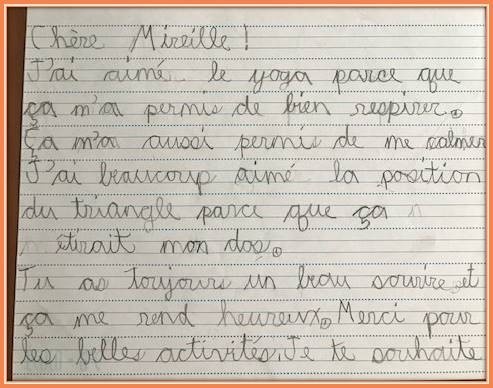 Chère Mireille!
J'ai aimé le yoga parce que
ça m'a permis de bien respirer.
Ça m'a aussi permis de me calmer
J'ai beaucoup aimé la position
du triangle parce que ça
étirait mon dos.
Tu as toujours un beau sourire et
ça me rend heureux. Merci pour
les belles activités. Je te souhaite